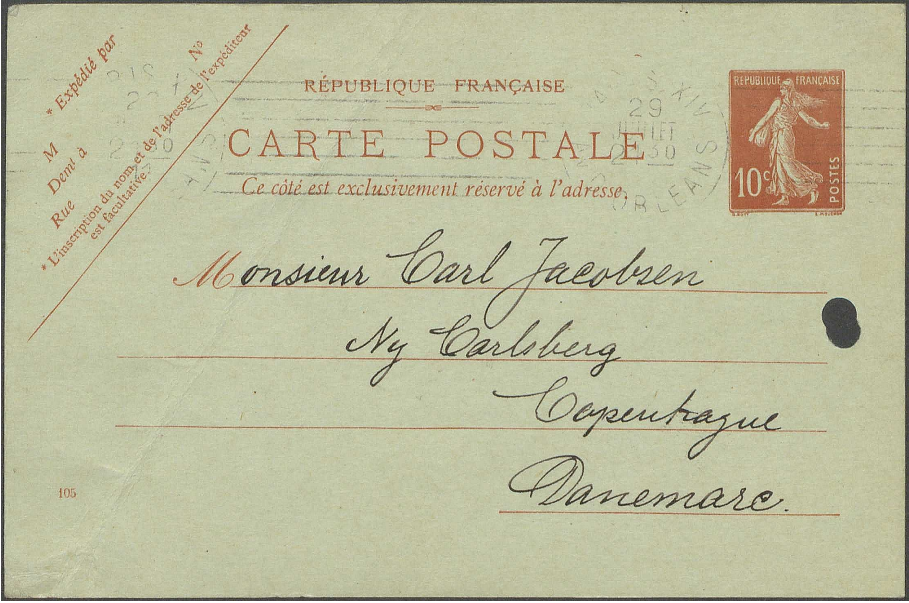 * Expédié par
M
Demt à
Rue
No
* L'inscription du nom et de l'adresse de l'expéditeur
est facultative.
RÉPUBLIQUE FRANÇAISE
CARTE POSTALE
Ce côté est exclusivement réservé à l'adresse.
XIV
29
ORLEANS
RÉPUBLIQUE FRANÇAISE
10c
POSTES
Monsieur Carl Jacobsen
Ny Carlsberg
Copenhague
Danemarc.
105